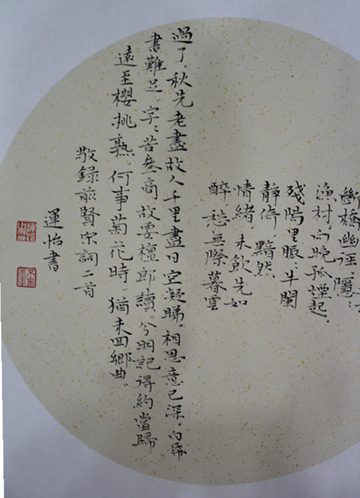 斷橋幽徑隱〻
漁村，向晚孤煙起。
殘陽里脈〻朱闌
靜倚，黯然
情緒，未飲先如
醉，愁無際，暮雲
過了，秋光老盡，故人千里，盡日空凝睇。相思意已深，白紙
書難足。字〻苦叄商，故要檀郎讀。分明記得約當歸，
遠至櫻桃熟。何事菊花時，猶未回鄉曲。
敬錄前賢宋詞二首
運怡書